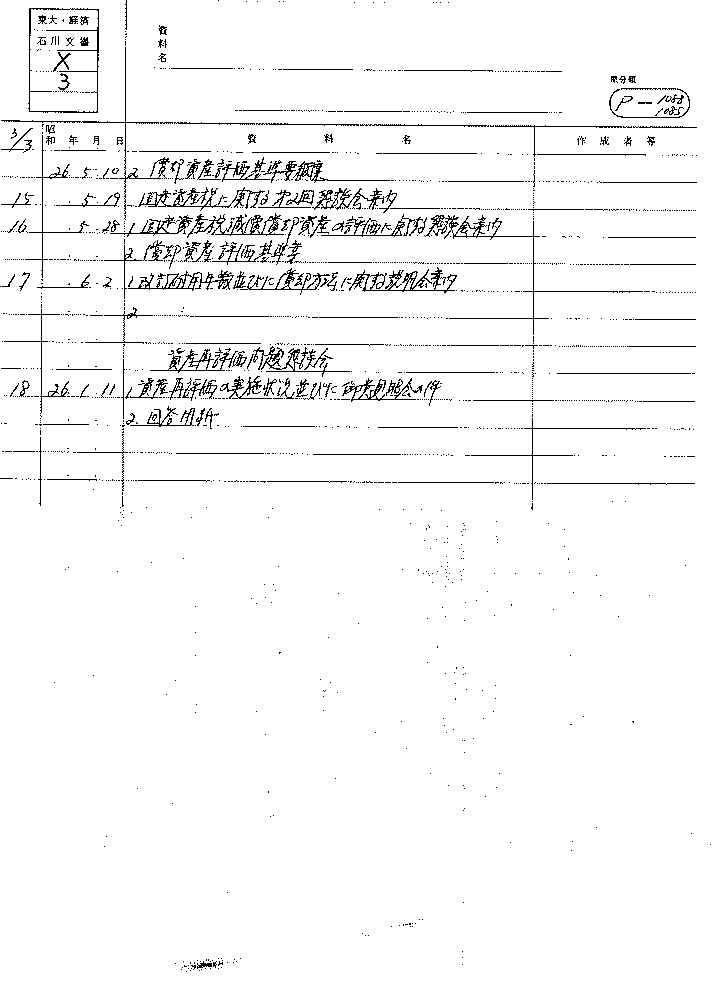 東大・経済
石川文書
X
3
資料名
原分類
P-1058
1085
3/3
昭和 年 月 日 資料名 作成者等
26 5 10 2. 償却資産評価基準要綱案
15 5 19 固定資産税に関する第2回懇談会案内
16 5 28 1. 固定資産税減価償却資産の評価に関する懇談会案内
2. 償却資産評価基準
17 6 2 1. 改訂耐用年数並びに償却方法に関する説明会案内
2. 〃
資産再評価問題懇談会
18 26 1 11 1. 資産再評価の実施状況並びに御意見照会の件
2. 回答用紙